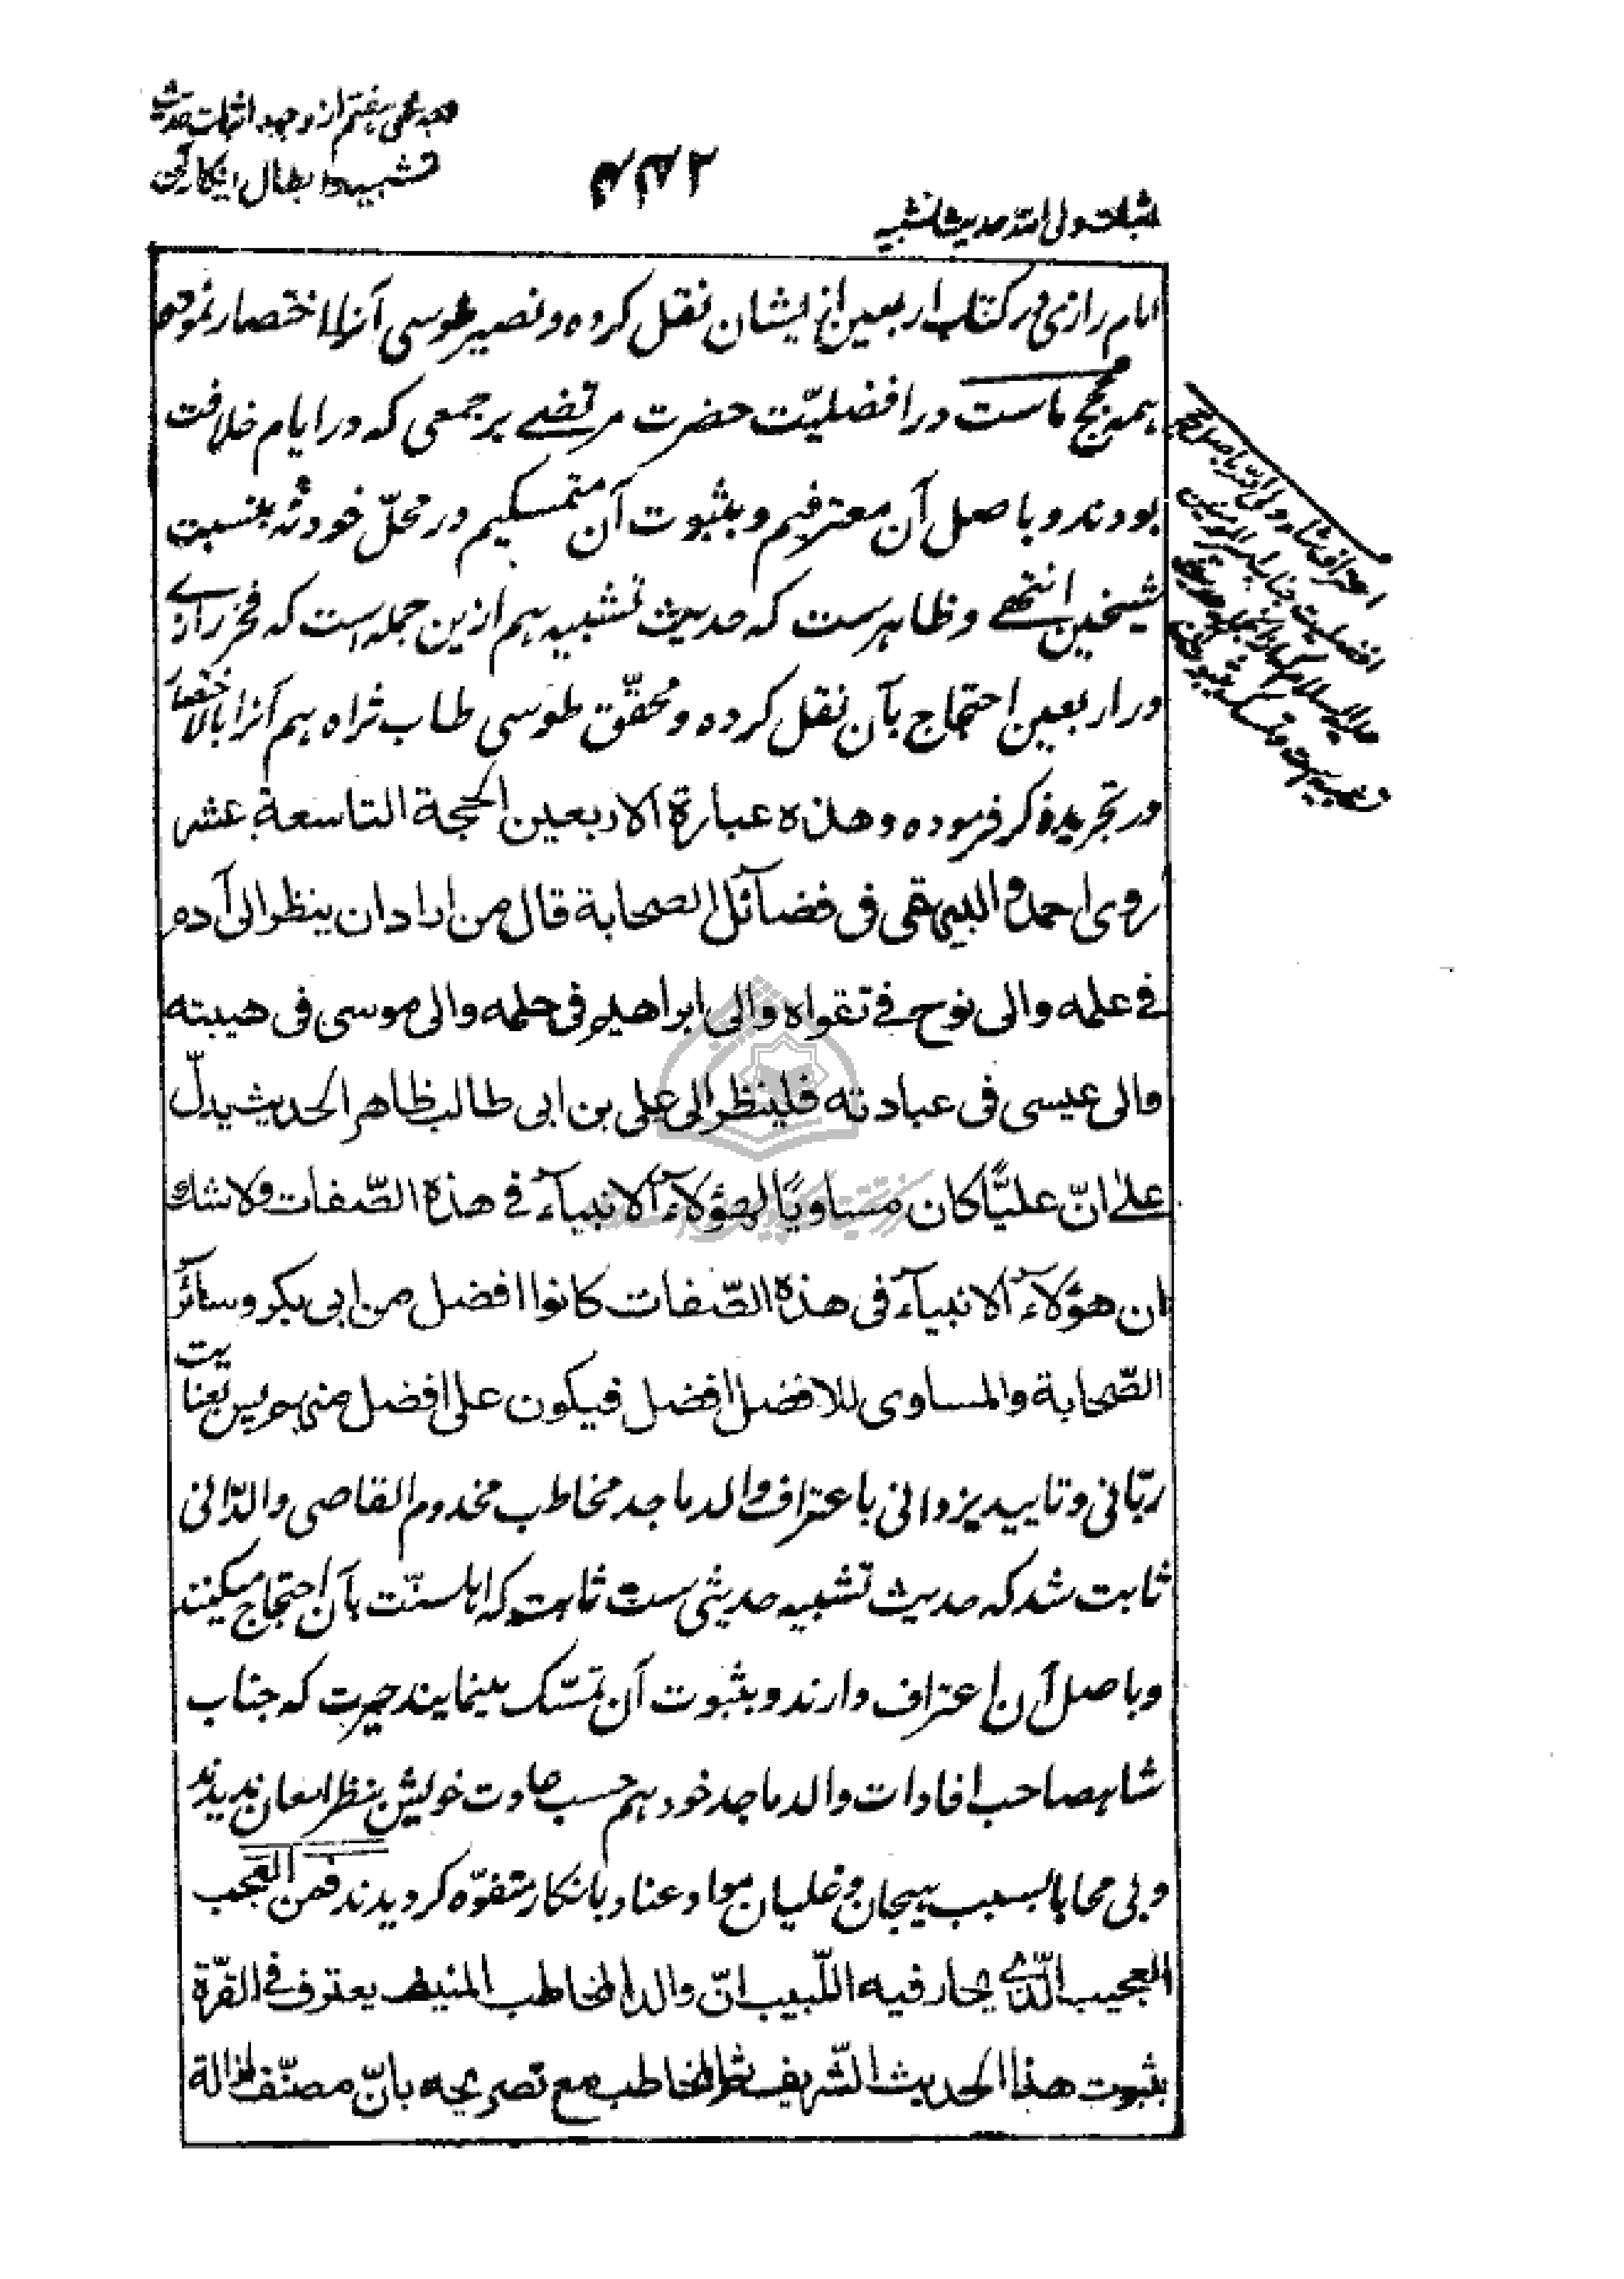 وجه سی هفتم از وجوه اثبات حدیث
تشبیه و ابطال انکار آن
۴۴۲
اثبات ولی الله حدیث تشبیه
امام رازی در کتاب اربعین از ایشان نقل کرده و نصیر طوسی آنرا اختصار نموده
همه حجج ماست در افضلیّت حضرت مرتضے بر جمعی که در ایام خلافت
بودند و باصل آن معترفیم و بثبوت آن متمسکیم در محلّ خودش نه بنسبت
شیخین انتهے و ظاهرست که حدیث تشبیه هم ازین جمله است که فخر رازے
در اربعین احتجاج بآن نقل کرده و محقّق طوسی طاب ثراه هم آنرا بالاختصار
در تجرید ذکر فرموده وهذه عبارة الاربعین الحجة التاسعة عشر
روی احمد و البیهقی فی فضآئل الصحابة قال من اراد ان ینظر الی آدم
فے علمه والی نوح فے تقواه والی ابراهیم فی حلمه والی موسی فی هیبته
والی عیسی فی عبادته فلینظر الی علی بن ابی طالب ظاهر الحدیث یدلّ
علےٰ انّ علیًّا کان مساویًا لهؤلآء الانبیآء فے هذه الصّفات ولا شك
ان هؤلآء الانبیآء فی هذه الصّفات کانوا افضل من ابی بکر وسآئر
الصّحابة والمساوی للافضل افضل فیکون علی افضل منهم پس بعنایت
ربّانی و تایید یزدانی باعتراف والد ماجد مخاطب مخدوم القاصی والدّانی
ثابت شد که حدیث تشبیه حدیثی ست ثابت که اهلسنّت بآن احتجاج میکنند
و باصل آن اعتراف دارند و بثبوت آن تمسّک مینمایند حیرت که جناب
شاهصاحب افادات والد ماجد خود هم حسب عادت خویش بنظر امعان ندیدند
و بی محابا بسبب هیجان و غلیان مواد عناد بانکار متفوّه کردیدند فمن العجب
العجیب الّذی یحار فیه اللّبیب انّ والد المخاطب المنیف یعترف فے القرّة
بثبوت هذا الحدیث الشّریف ثم المخاطب مع تصریحه بانّ مصنّف ازالة
اعتراف شاه ولی الله باصل حجج
افضلیت جناب امیر المومنین
علیه السلام که از انجمله حدیث
تشبیه است و تمسک بثبوت آن